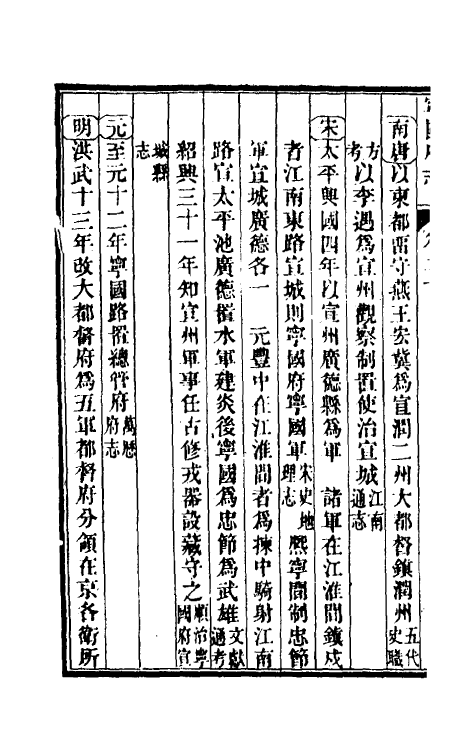 南唐以東都留守燕王宏冀為宣潤二州大都督鎮潤州五代史職
方考以李遇為宣州觀察制置使治宣城江南通志
宋太平興國四年以宣州廣德縣為軍　諸軍在江淮間鎮戍
者江南東路宣城則寧國府寧國軍宋史地理志　熙寧間制忠節
軍宣城廣德各一　元豐中在江淮間者為揀中騎射江南
路宣太平池廣德置水軍建炎後寧國為忠節為武雄文獻通考
紹興三十一年知宣州軍事任古修戎器設藏守之順治寧國府宣
城縣志
元至元十二年寧國路置總管府萬曆府志
明洪武十三年改大都督府為五軍都督府分領在京各衛所